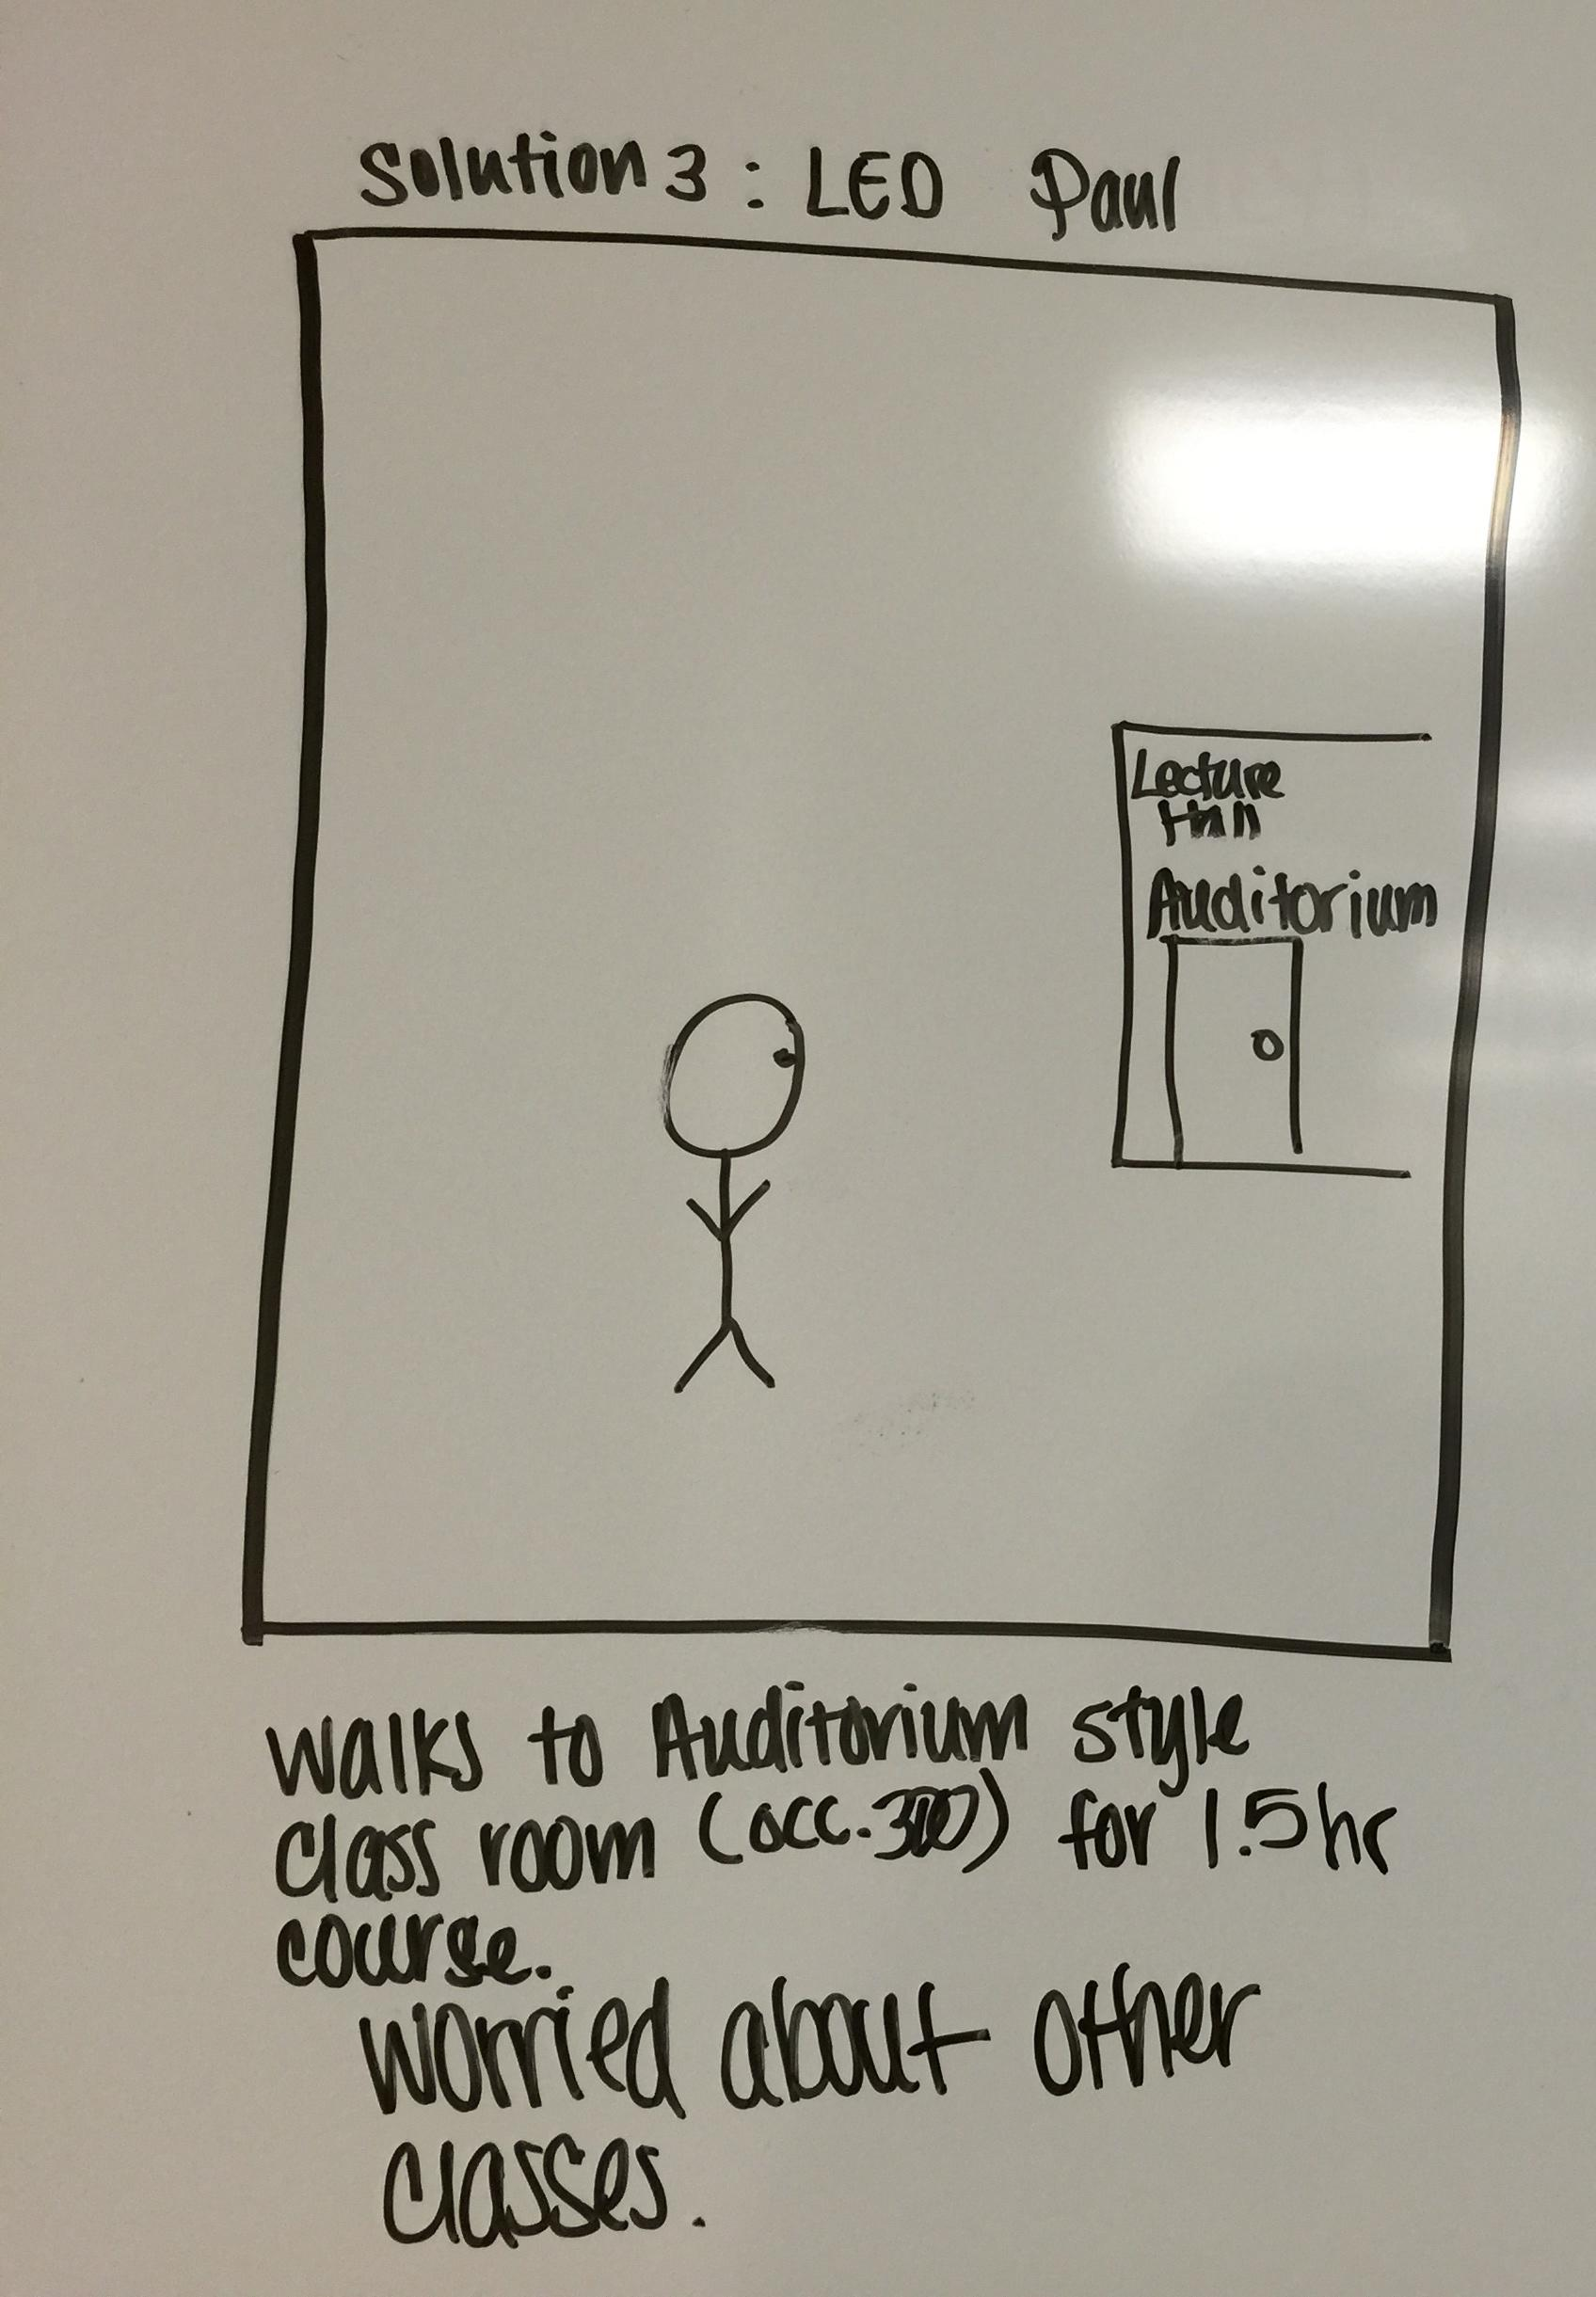 Solution 3 : LED Paul
Lecture
Hall
Auditorium
Walks to Auditorium style
class room (occ. 300) for 1.5 hr
course.
worried about other
classes.